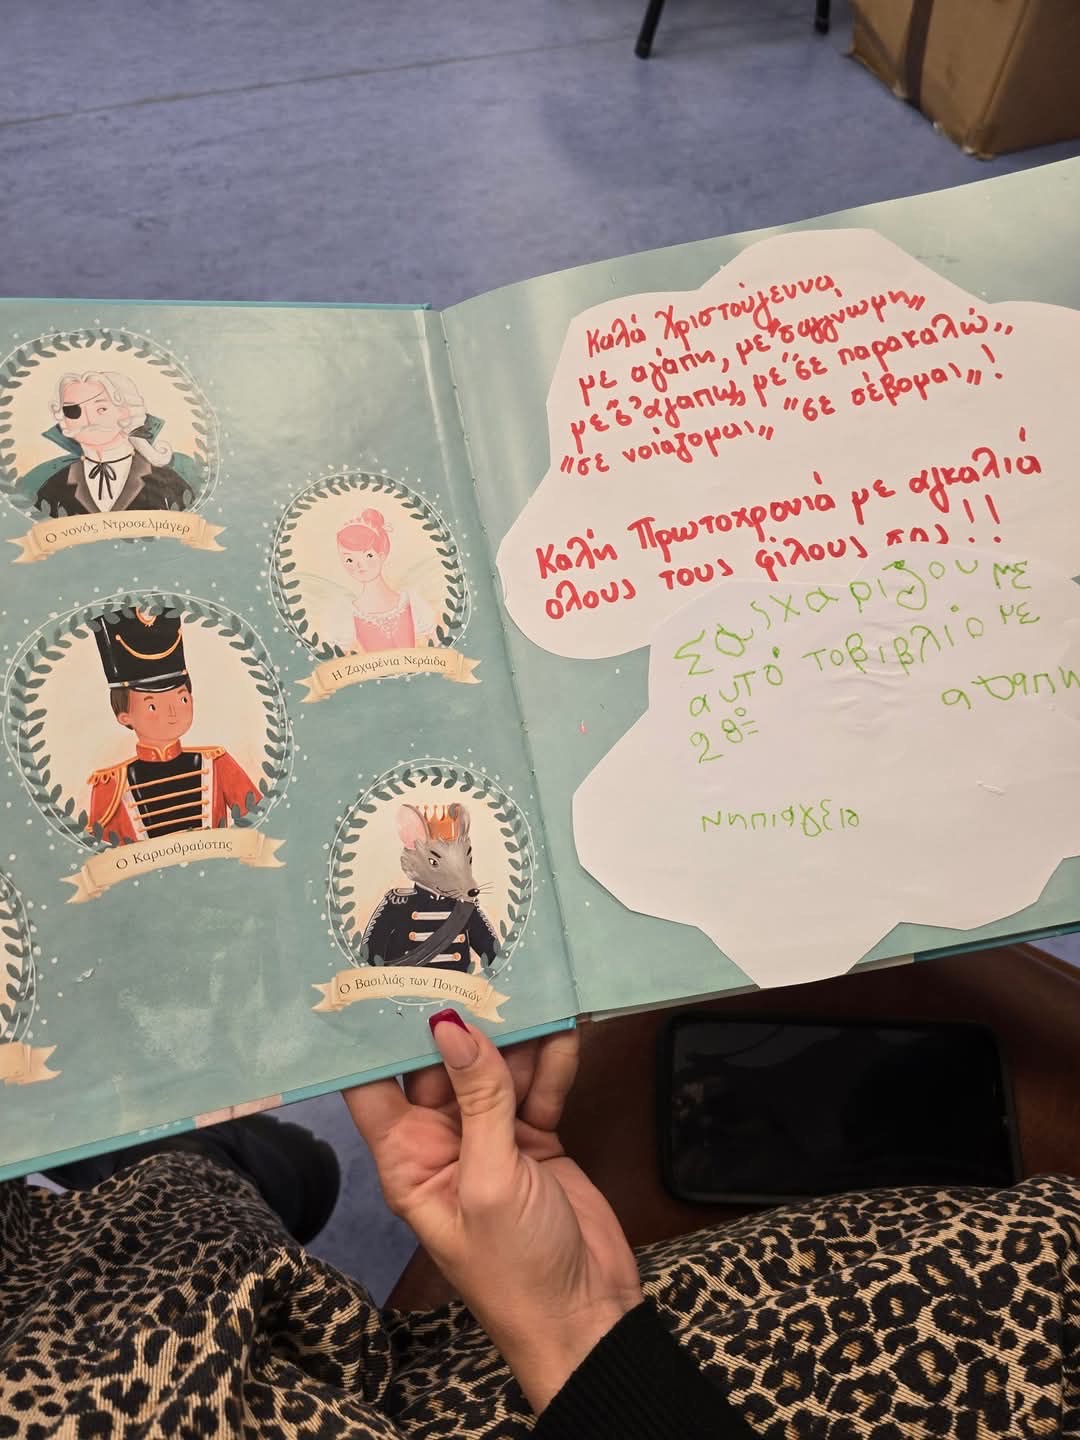 Ο νονός Ντροσελμάγερ
Η Ζαχαρένια Νεράιδα
Ο Καρυοθραύστης
Ο Βασιλιάς των Ποντικών
Καλά Χριστούγεννα
με αγάπη, με "συγγνώμη"
με "σ' αγαπώ", με "σε παρακαλώ"
"σε νοιάζομαι" "σε σέβομαι"!
Καλή Πρωτοχρονιά με αγκαλιά
όλους τους φίλους της!!
Σας χαρίζουμε
αυτό το βιβλίο με
αγάπη
28º
νηπιαγείο